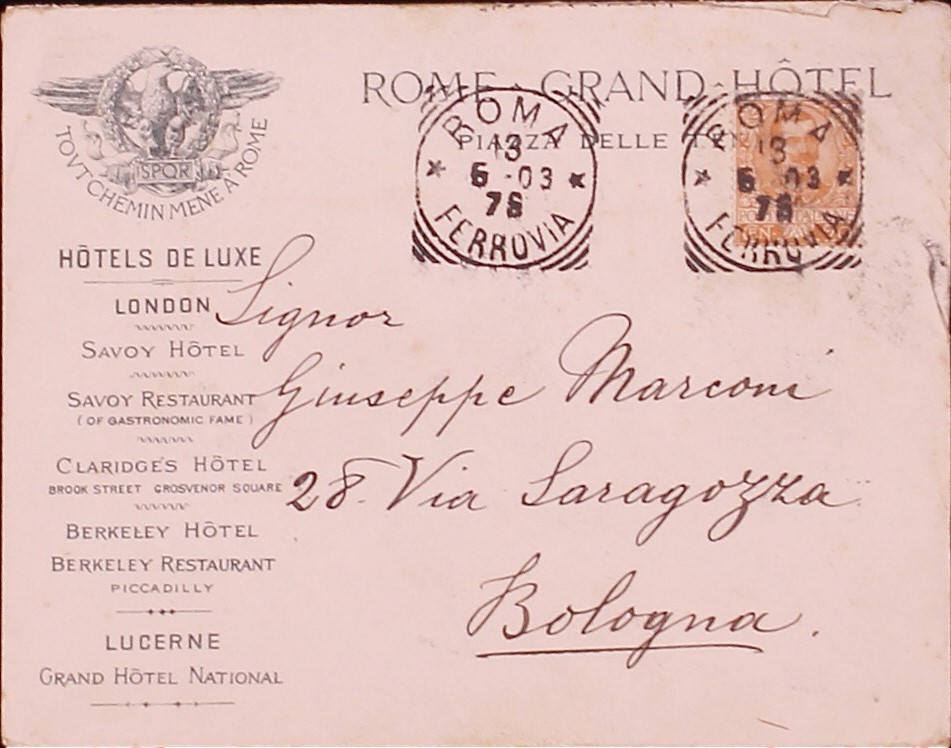 ROME · GRAND · HÔTEL
PIAZZA DELLE
SPQR
TOVT CHEMIN MENE À ROME
ROMA
13
6 - 03
7S
FERROVIA
ROMA
13
6 03
7S
FERROVIA
HÔTELS DE LUXE
LONDON
SAVOY HÔTEL
SAVOY RESTAURANT
(OF GASTRONOMIC FAME)
CLARIDGE'S HÔTEL
BROOK STREET GROSVENOR SQUARE
BERKELEY HÔTEL
BERKELEY RESTAURANT
PICCADILLY
LUCERNE
GRAND HÔTEL NATIONAL
Signor
Giuseppe Marconi
28. Via Saragozza
Bologna.